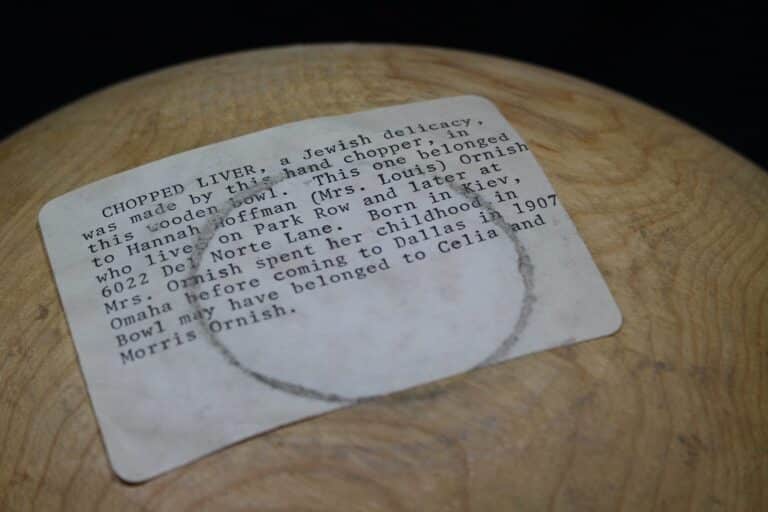 CHOPPED LIVER, a Jewish delicacy,
was made by this hand chopper, in
this wooden bowl. This one belonged
to Hannah Hoffman (Mrs. Louis) Ornish
who lived on Park Row and later at
6022 Del Norte Lane. Born in Kiev,
Mrs. Ornish spent her childhood in
Omaha before coming to Dallas in 1907
Bowl may have belonged to Celia and
Morris Ornish.